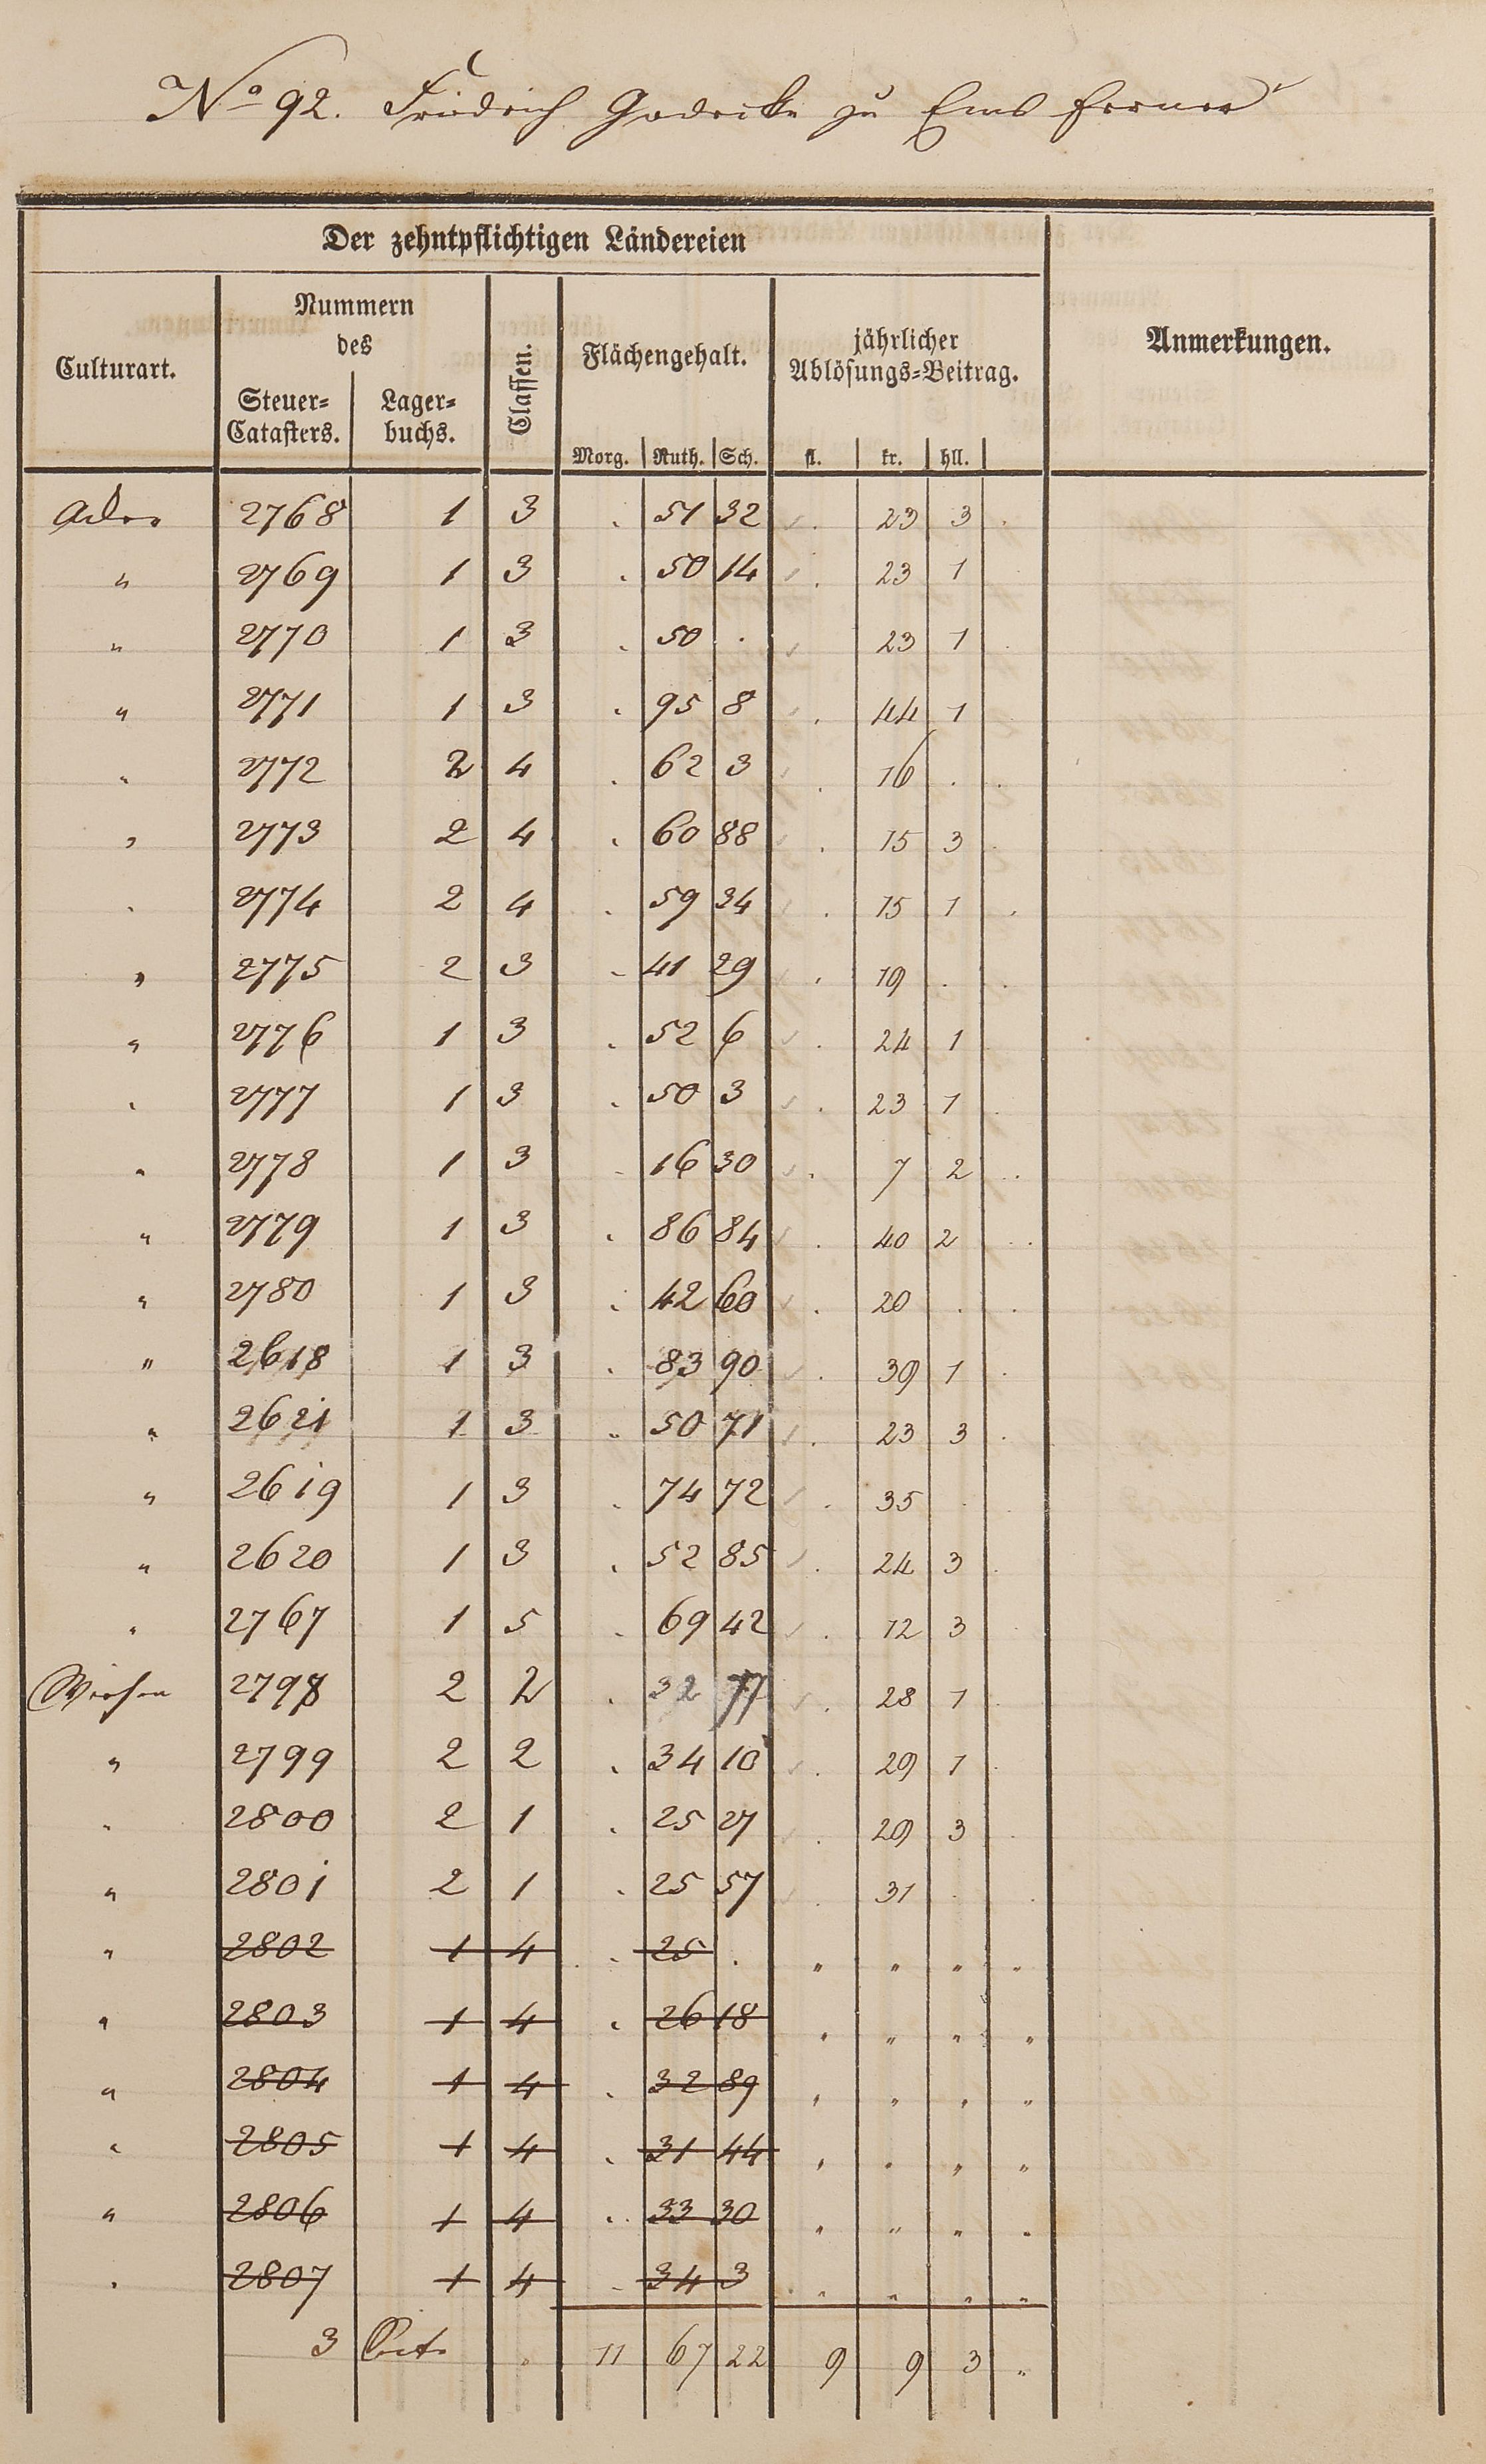 No 92. Friedrich Godecke zu Ems ferner
Der zehntpflichtigen Ländereien
Culturart. Nummern des Steuer-Catasters. Lagerbuchs. Classen. Flächengehalt. Morg. Ruth. Sch. jährlicher Ablösungs-Beitrag. fl. kr. hll. Anmerkungen.
Acker 2768 1 3 . 51 32 . 23 3 .
" 2769 1 3 . 50 14 . 23 1
" 2770 1 3 . 50 . . 23 1 .
" 2771 1 3 . 95 8 . 44 1
" 2772 2 4 . 62 3 . 16 . .
" 2773 2 4 . 60 88 . 15 3 .
" 2774 2 4 . 59 34 . 15 1 .
" 2775 2 3 . 41 29 . 19 . .
" 2776 1 3 . 52 6 . 24 1 .
" 2777 1 3 . 50 3 . 23 1 .
" 2778 1 3 . 16 30 . 7 2 .
" 2779 1 3 . 86 84 . 40 2 .
" 2780 1 3 . 42 60 . 20 . .
" 2618 1 3 . 83 90 . 39 1 .
" 2621 1 3 . 50 71 . 23 3 .
" 2619 1 3 . 74 72 . 35 .
" 2620 1 3 . 52 85 . 24 3 .
" 2767 1 5 . 69 42 . 12 3
Wiesen 2798 2 2 . 32 77 . 28 1
" 2799 2 2 . 34 10 . 29 1 .
" 2800 2 1 . 25 27 . 29 3 .
" 2801 2 1 . 25 57 . 31 . .
" 2802 1 4 . 25 . " " " "
" 2803 1 4 . 26 18 " " " "
" 2804 1 4 . 32 89 " " " "
" 2805 1 4 . 31 44 " " " "
" 2806 1 4 . 33 30 " " " "
" 2807 1 4 . 34 3 " " " "
3 . 11 67 22 9 9 3 "